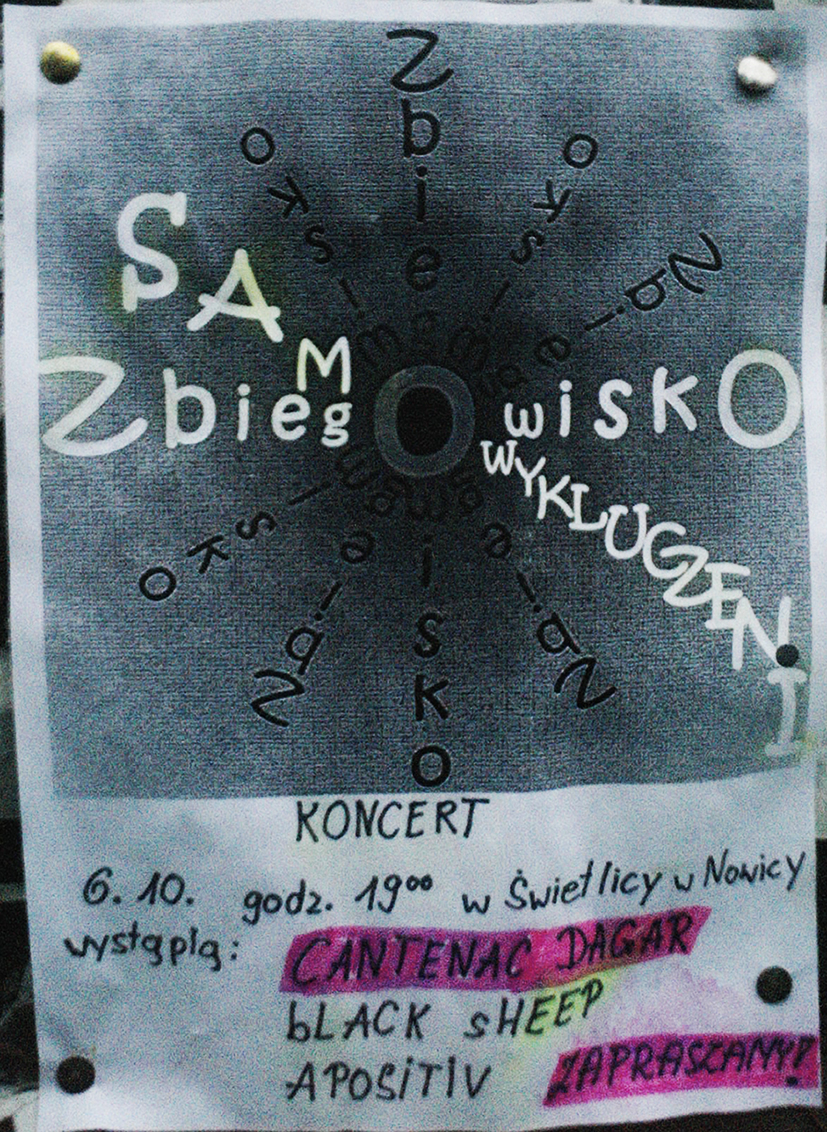 Zbiegowisko
Zbiegowisko
Zbiegowisko
Zbiegowisko
SAM
ZbiegOwiskO
WYKLUCZENI
KONCERT
6.10. godz. 19⁰⁰ w Świetlicy w Nowicy
wystąpią: CANTENAC DAGAR
bLACK sHEEP
APOSiTiV ZAPRASZAMY!